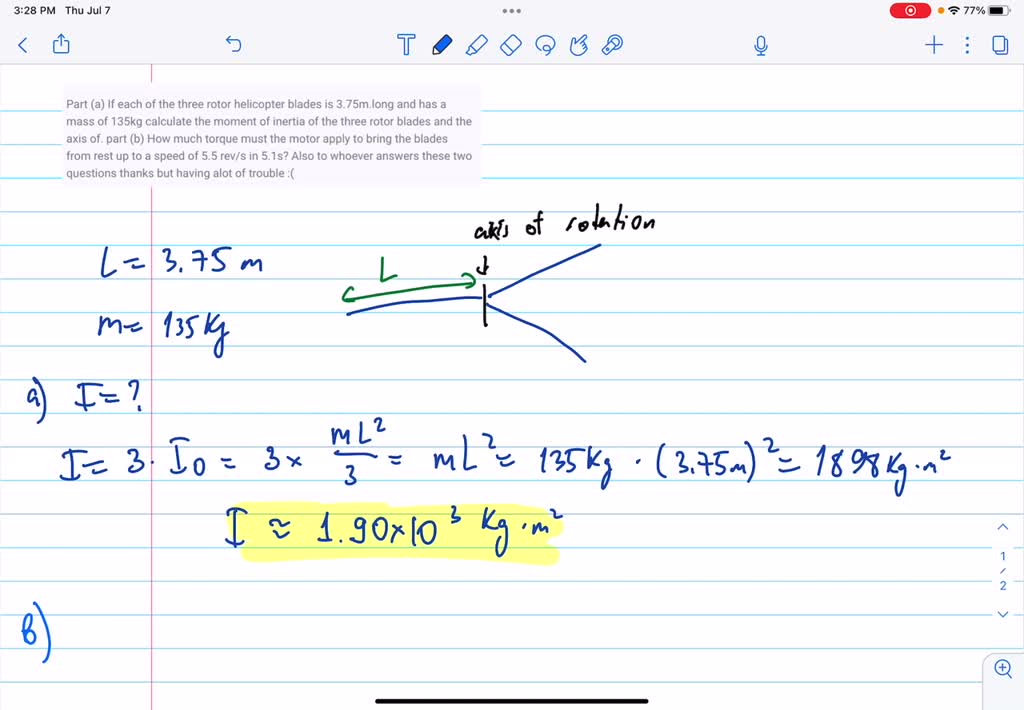 3:28 PM Thu Jul 7
77%
Part (a) If each of the three rotor helicopter blades is 3.75m.long and has a
mass of 135kg calculate the moment of inertia of the three rotor blades and the
axis of. part (b) How much torque must the motor apply to bring the blades
from rest up to a speed of 5.5 rev/s in 5.1s? Also to whoever answers these two
questions thanks but having alot of trouble :(
axis of rotation
L = 3.75 m
L
m = 135 Kg
a) I = ?
I = 3 · I0 = 3 × mL²/3 = mL² = 135 Kg · (3.75 m)² = 1898 Kg·m²
I ≈ 1.90×10³ Kg·m²
1
/
2
b)